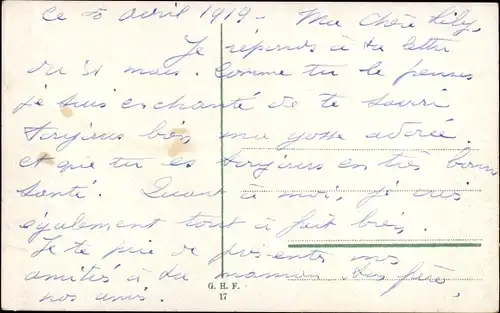 ce 5 avril 1919 - Ma chère Lily,
Je réponds à ta lettre
du 31 mars. Comme tu le penses
je suis enchanté de te savoir
toujours bien ma gosse adorée
et que tu es toujours en très bonne
santé. Quant à moi, je suis
également tout à fait bien.
Je te prie de présenter mes
amitiés à ta maman, ton frère,
nos amis.
G. H. F.
17